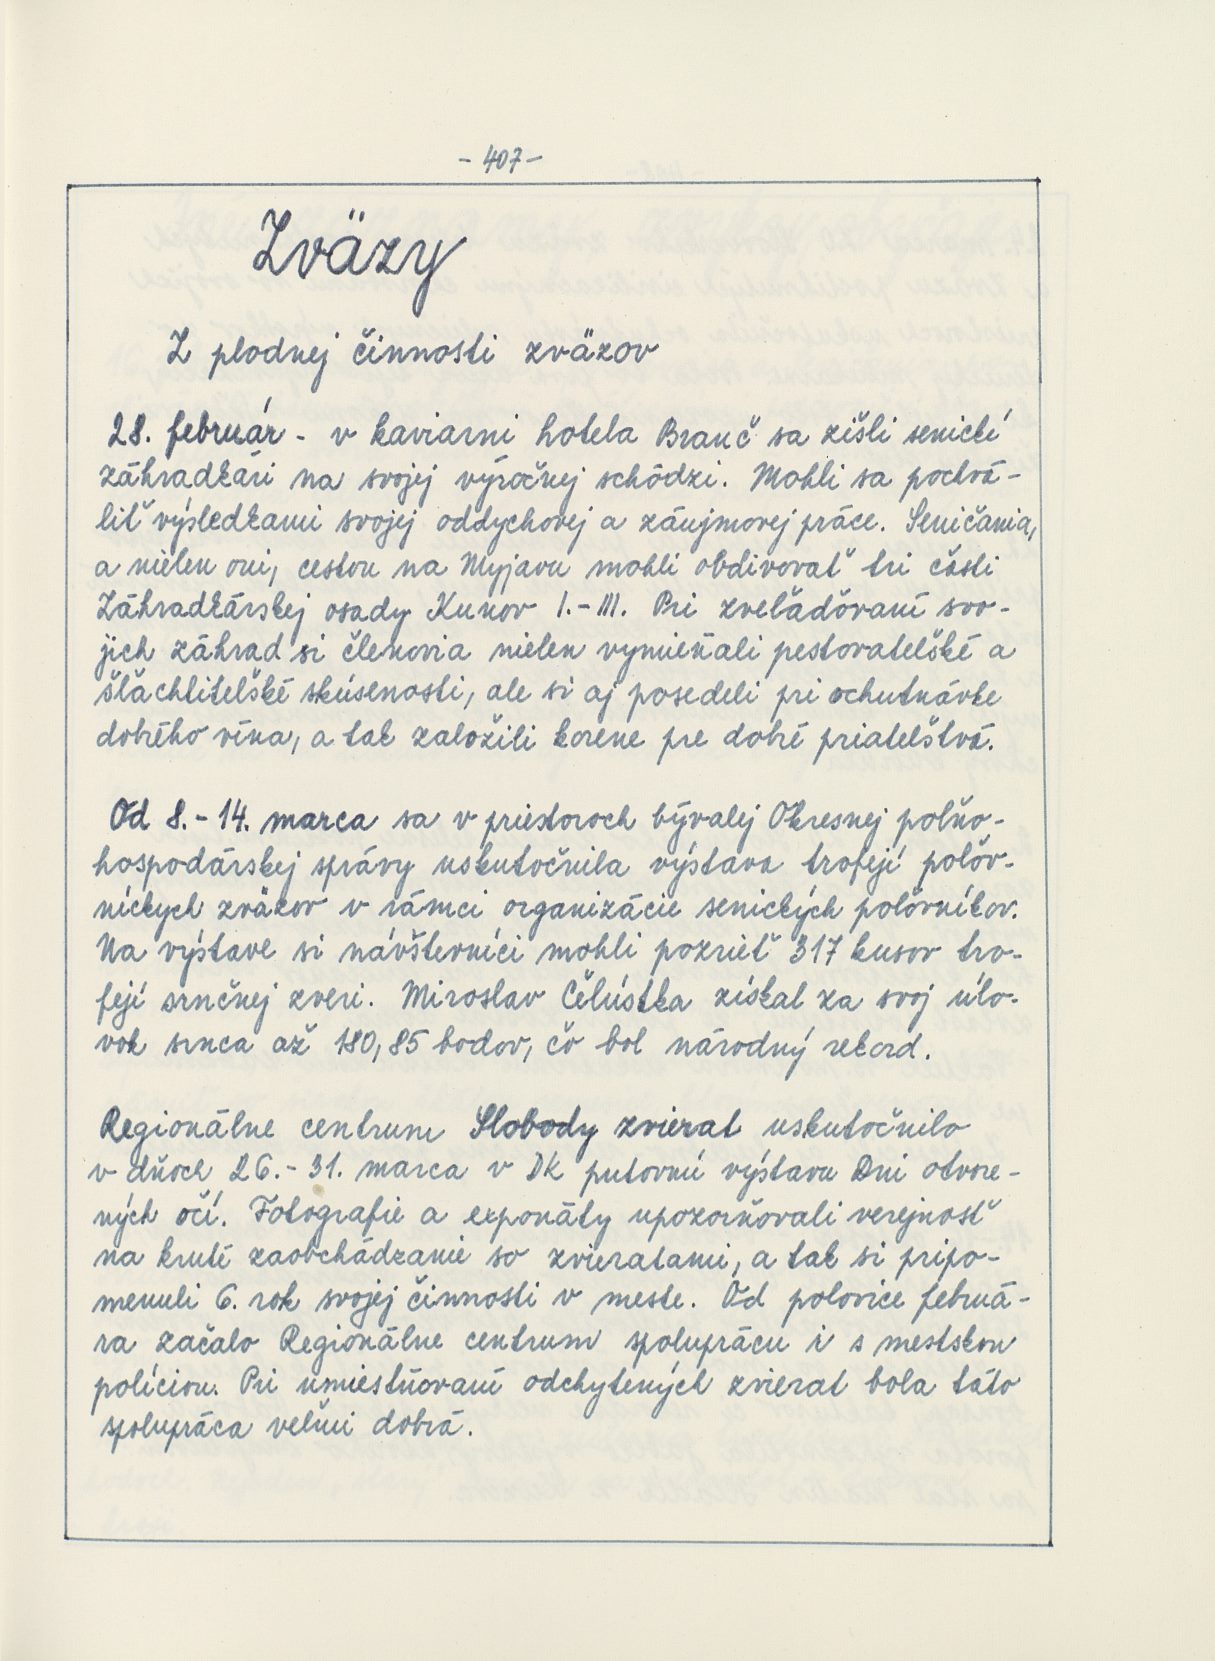 - 407 -
Zväzy
Z plodnej činnosti zväzov
28. február - v kaviarni hotela Branč sa zišli senickí
záhradkári na svojej výročnej schôdzi. Mohli sa pochvá-
liť výsledkami svojej oddychovej a záujmovej práce. Seničania,
a nielen oni, cestou na Myjavu mohli obdivovať tri časti
Záhradkárskej osady Kunov I.-III. Pri zveľaďovaní svo-
jich záhrad si členovia nielen vymieňali pestovateľské a
šľachtiteľské skúsenosti, ale si aj posedeli pri ochutnávke
dobrého vína, a tak založili korene pre dobré priateľstvá.
Od 8.-14. marca sa v priestoroch bývalej Okresnej poľno-
hospodárskej správy uskutočnila výstava trofejí poľov-
níckych zväzov v rámci organizácie senických poľovníkov.
Na výstave si návštevníci mohli pozrieť 317 kusov tro-
fejí srnčej zveri. Miroslav Čelústka získal za svoj úlo-
vok srnca až 180,85 bodov, čo bol národný rekord.
Regionálne centrum Slobody zvierat uskutočnilo
v dňoch 26.-31. marca v DK putovnú výstavu Dni otvore-
ných očí. Fotografie a exponáty upozorňovali verejnosť
na kruté zaobchádzanie so zvieratami, a tak si pripo-
menuli 6. rok svojej činnosti v meste. Od polovice februá-
ra začalo Regionálne centrum spoluprácu i s mestskou
políciou. Pri umiestňovaní odchytených zvierat bola táto
spolupráca veľmi dobrá.